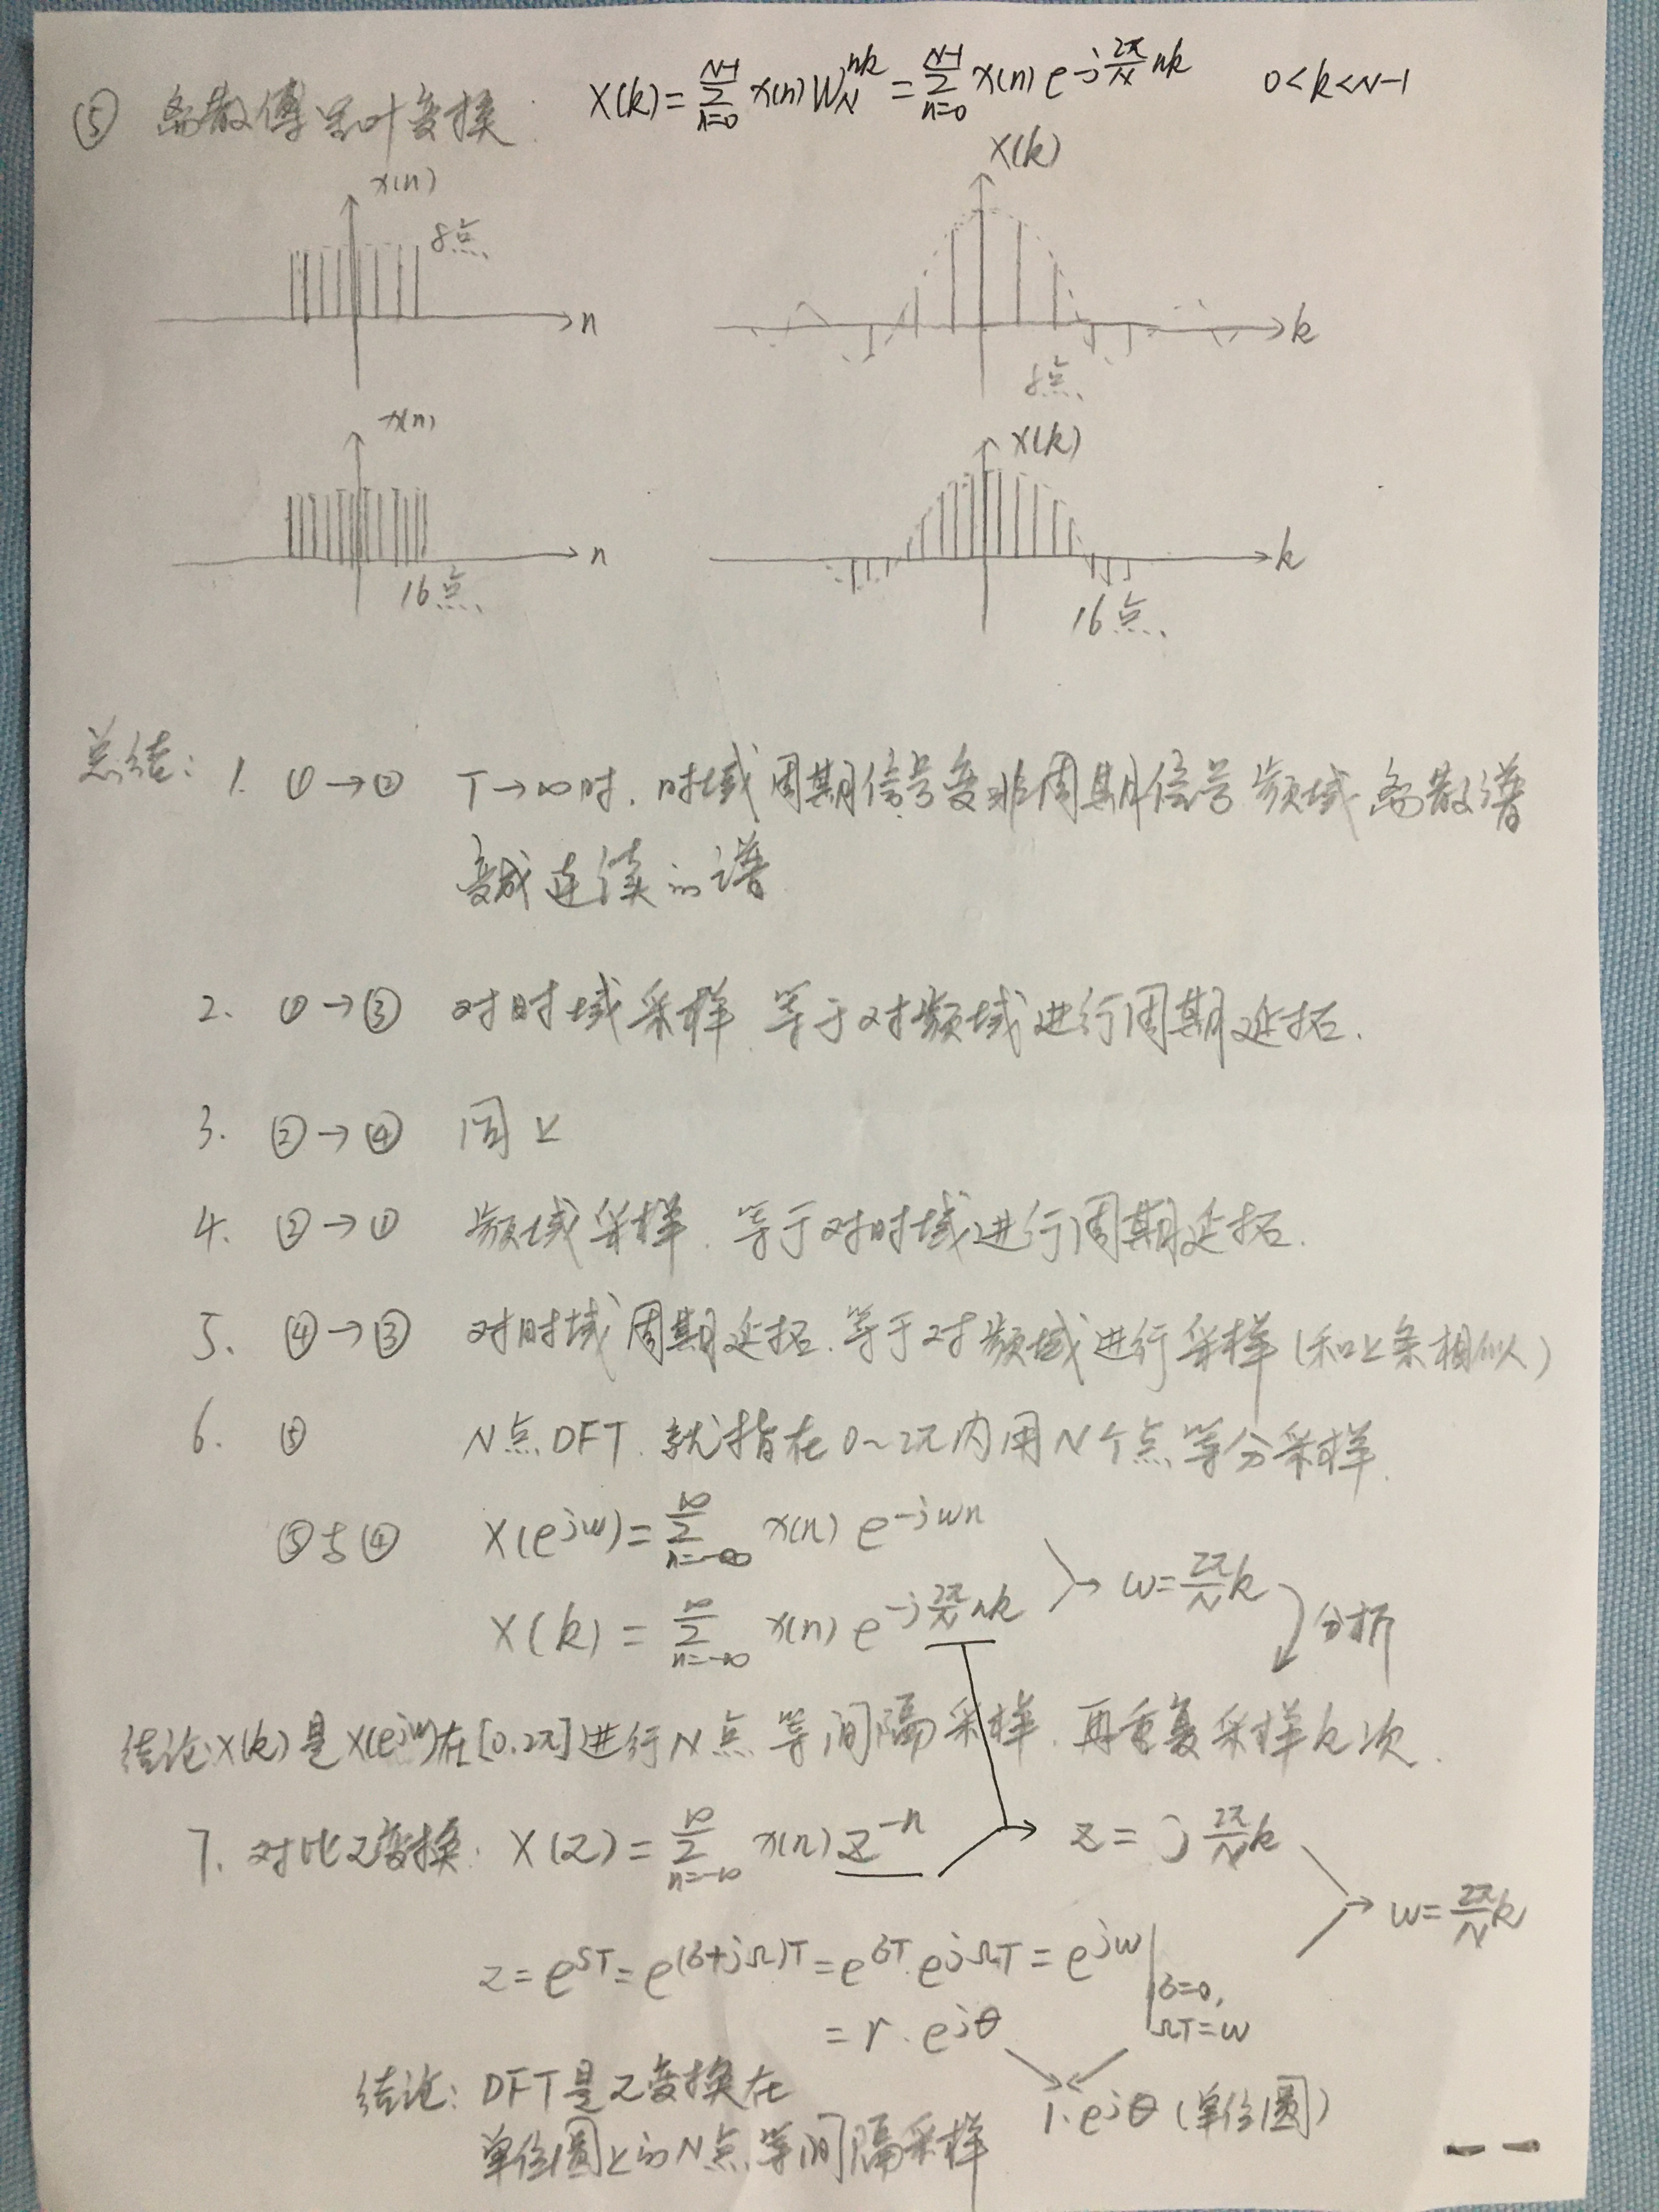 ⑤ 离散傅里叶变换: X(k)=∑_{n=0}^{N-1} x(n)W_N^{nk}=∑_{n=0}^{N-1} x(n)e^{-j\frac{2π}{N}nk} 0<k<N-1
x(n)
8点
n
X(k)
k
8点
x(n)
n
16点
X(k)
k
16点
总结: 1. ①→② T→∞时, 时域周期信号变非周期信号 频域离散谱
变成连续的谱
2. ①→③ 对时域采样 等于对频域进行周期延拓.
3. ②→④ 同上
4. ②→① 频域采样. 等于对时域进行周期延拓.
5. ④→③ 对时域周期延拓. 等于对频域进行采样 (和上条相似)
6. ⑤ N点DFT. 就指在0~2π内用N个点等分采样.
⑤与④ X(e^{jω})=∑_{n=-∞}^{∞} x(n) e^{-jωn}
→ ω=\frac{2π}{N}k
X(k)=∑_{n=-∞}^{∞} x(n) e^{-j\frac{2π}{N}nk}
分析
结论:X(k)是X(e^{jω})在[0,2π]进行N点等间隔采样. 再重复采样k次.
7. 对比Z变换: X(z)=∑_{n=-∞}^{∞} x(n) z^{-n} → z=j\frac{2π}{N}k
→ ω=\frac{2π}{N}k
z=e^{ST}=e^{(σ+jΩ)T}=e^{σT}·e^{jΩT}=e^{jω}|σ=0, ΩT=ω
=r·e^{jθ}
结论: DFT是Z变换在
1·e^{jθ} (单位圆)
单位圆上的N点等间隔采样